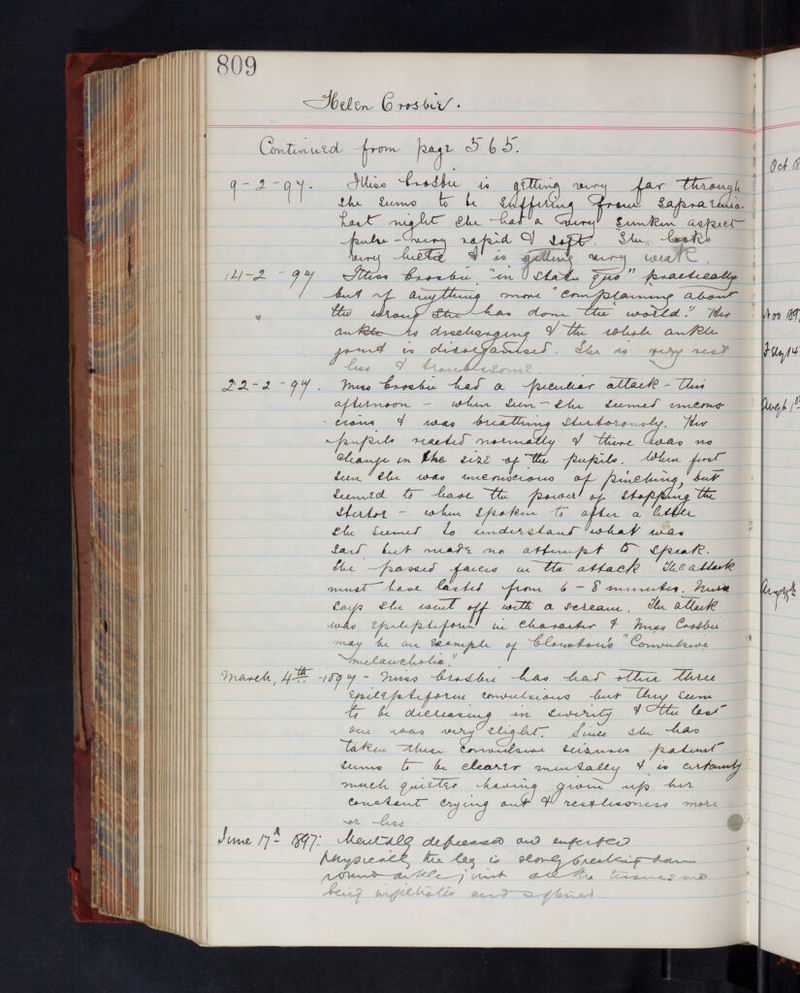 809
Helen Crosbie.
Continued from page 565.
9-2-97. Miss Crosbie is getting very far through
She seems to be suffering from Sapraemia.
Last night she had a very sunken aspect
pulse - very rapid & soft. She looks
very & is getting very weak.
14-2-97 Miss Crosbie "in statu quo" practically
but if anything more "complaining about
the wrong she has done the world." Her
ankle is discharging & the whole ankle
joint is disorganised. She is very rest
less & troublesome.
22-2-97. Miss Crosbie had a peculiar attack - this
afternoon - when seen - she seemed uncons-
cious & was breathing stertorously. Her
pupils reacted normally & there was no
change in the size of the pupils. When first
seen she was unconscious of pinching, but
seemed to have the power of stopping the
stertor - when spoken to after a little
she seemed to understand what was
said but made no attempt to speak.
She passed faeces in the attack. The attack
must have lasted from 6-8 minutes. Nurse
says she went off with a scream. The attack
was epileptiform in character & Miss Crosbie
may be an example of Clouston's "Convulsive
melancholia."
March, 4th -1897 - Miss Crosbie has had other three
epileptiform convulsions but they seem
to be decreasing in severity & the last
one was very slight. Since she has
taken these convulsive seizures patient
seems to be clearer mentally & is certainly
much quieter having given up her
constant crying out & restlessness more
or less.
June 17th 1897: Mentally depressed and enfeebled
physically the leg is slowly breaking down
round ankle joint all the tissues
being infiltrated and
Oct
Nov 189